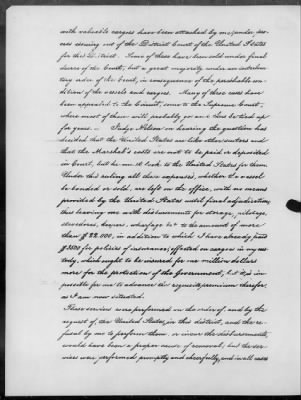 with valuable cargoes have been attached by me, under pro-
cess coming out of the District Court of the United States
for this District. Some of these have been sold under final
decree of the Court, but a great majority under an interlocu-
tory order of the Court, in consequence of the perishable con-
dition of the vessels and cargoes. Many of these cases have
been appealed to the Circuit, some to the Supreme Court,
where most of them will probably go and thus be tied up
for years. — Judge Nelson on hearing the question has
decided that the United States are like other suitors and
that the Marshal's costs are not to be paid or deposited
in Court, but he must look to the United States for them.
Under this ruling all these expenses, whether the vessel
be bonded or sold, are left on the office, with no means
provided by the United States until final adjudication,
thus leaving me with disbursements for storage, pilotage,
stevedores, keepers, wharfage &c to the amount of more
than $22.000, in addition to which I have already paid
$3500 for policies of insurance, effected on cargoes in my cus-
tody, which ought to be insured for one million dollars
more for the protection of the Government, but it is im-
possible for me to advance the requisite premium therefor,
as I am now situated.
These services were performed on the order of, and by the
request of, the United States, in this district, and the re-
fusal by me to perform them, or incur the disbursements,
would have been a proper cause of removal, but the ser-
vices was performed promptly and cheerfully, and in all cases